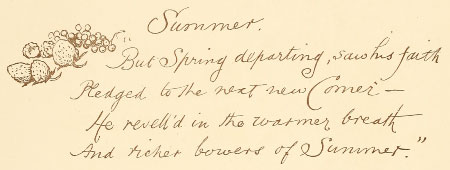 Summer.
But Spring departing, saw his faith
Pledged to the next new Comer —
He revell'd in the warmer breath
And richer bowers of Summer."